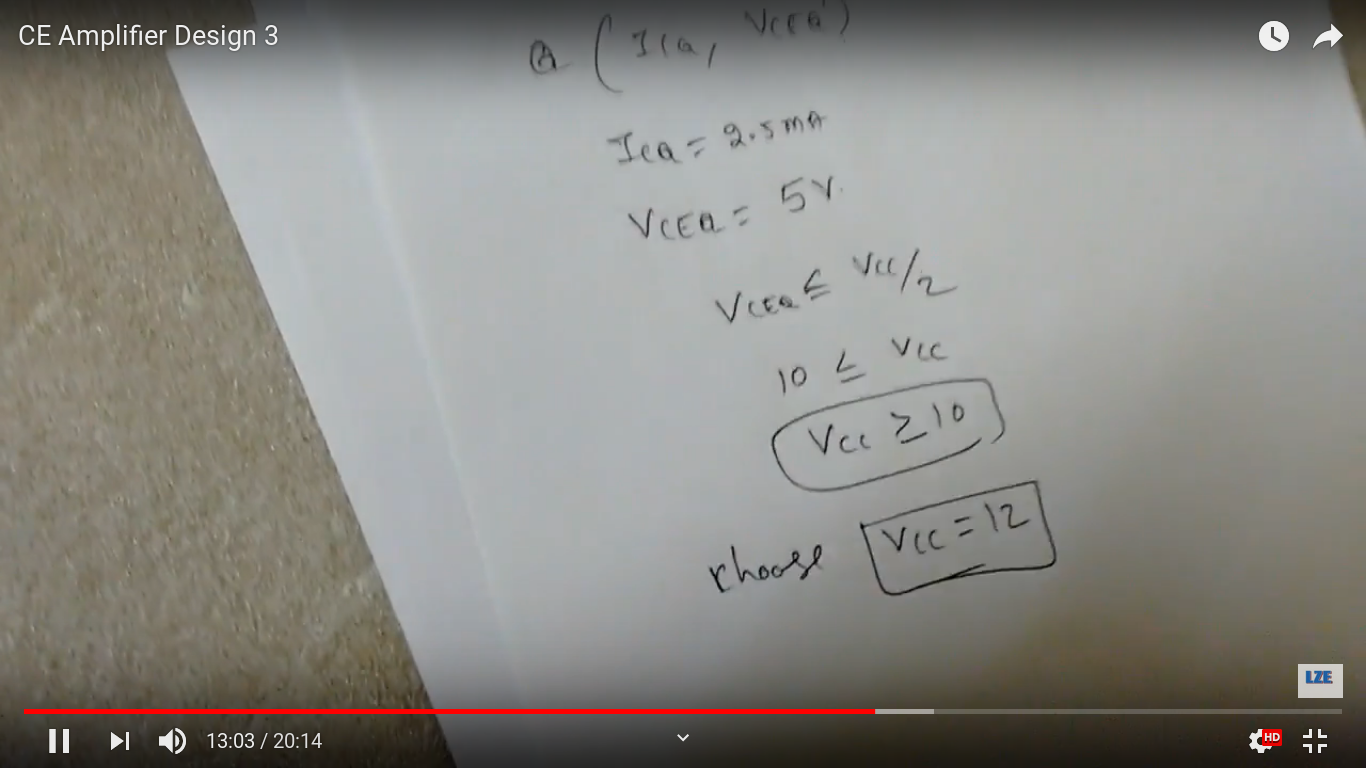 CE Amplifier Design 3
Q ( ICQ, VCEQ )
ICQ = 2.5mA
VCEQ = 5V.
VCEQ ≤ VCC/2
10 ≤ VCC
VCC ≥ 10
choose VCC = 12
LZE
13:03 / 20:14
HD